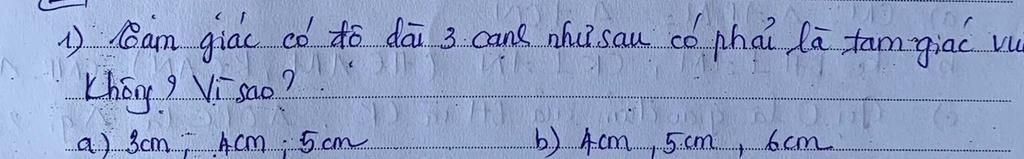 1) Tam giác có độ dài 3 cạnh như sau có phải là tam giác vu
Không? Vì sao?
a) 3cm; 4cm; 5cm b) 4cm, 5cm, 6cm